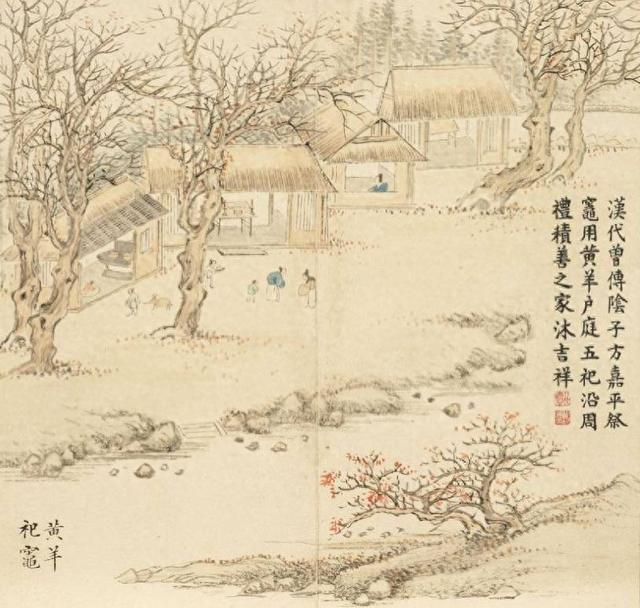 漢代曾傳陰子方嘉平祭
竈用黃羊戶庭五祀沿周
禮積善之家沐吉祥
黃羊
祀竈